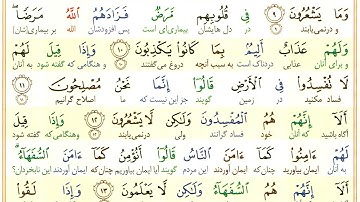 وَمَا يَشْعُرُونَ ۹ فِي قُلُوبِهِم مَرَضٌ فَزَادَهُمُ اللَّهُ مَرَضًا
و درنمی‌یابند در دل هایشان بیماری‌ای است پس افزودشان الله بر بیماری(شان)
وَلَهُمْ عَذَابٌ أَلِيمٌ بِمَا كَانُوا يَكْذِبُونَ ۱۰ وَإِذَا قِيلَ لَهُمْ
و برای آنان عذابی دردناک است به سبب آنچه دروغ می‌گفتند و هنگامی که گفته شود به آنان
لَا تُفْسِدُوا فِي الْأَرْضِ قَالُوا إِنَّمَا نَحْنُ مُصْلِحُونَ ۱۱
فساد مکنید در زمین گویند جز این نیست که ما اصلاح گرانیم
أَلَا إِنَّهُمْ هُمُ الْمُفْسِدُونَ وَلَكِن لَا يَشْعُرُونَ ۱۲ وَإِذَا قِيلَ
آگاه باشید که آنان خود فساد گرانند ولی درنمی‌یابند وهنگامی‌که گفته شود
لَهُمْ ءَامِنُوا كَمَا ءَامَنَ النَّاسُ قَالُوا أَنُؤْمِنُ كَمَا ءَامَنَ السُّفَهَاءُ
به آنان ایمان بیاورید چنان‌که ایمان آوردند این مردم گویند آیا ایمان بیاوریم چنان‌که ایمان آوردند این نابخردان؟
أَلَا إِنَّهُمْ هُمُ السُّفَهَاءُ وَلَكِن لَا يَعْلَمُونَ ۱۳ وَإِذَا لَقُوا